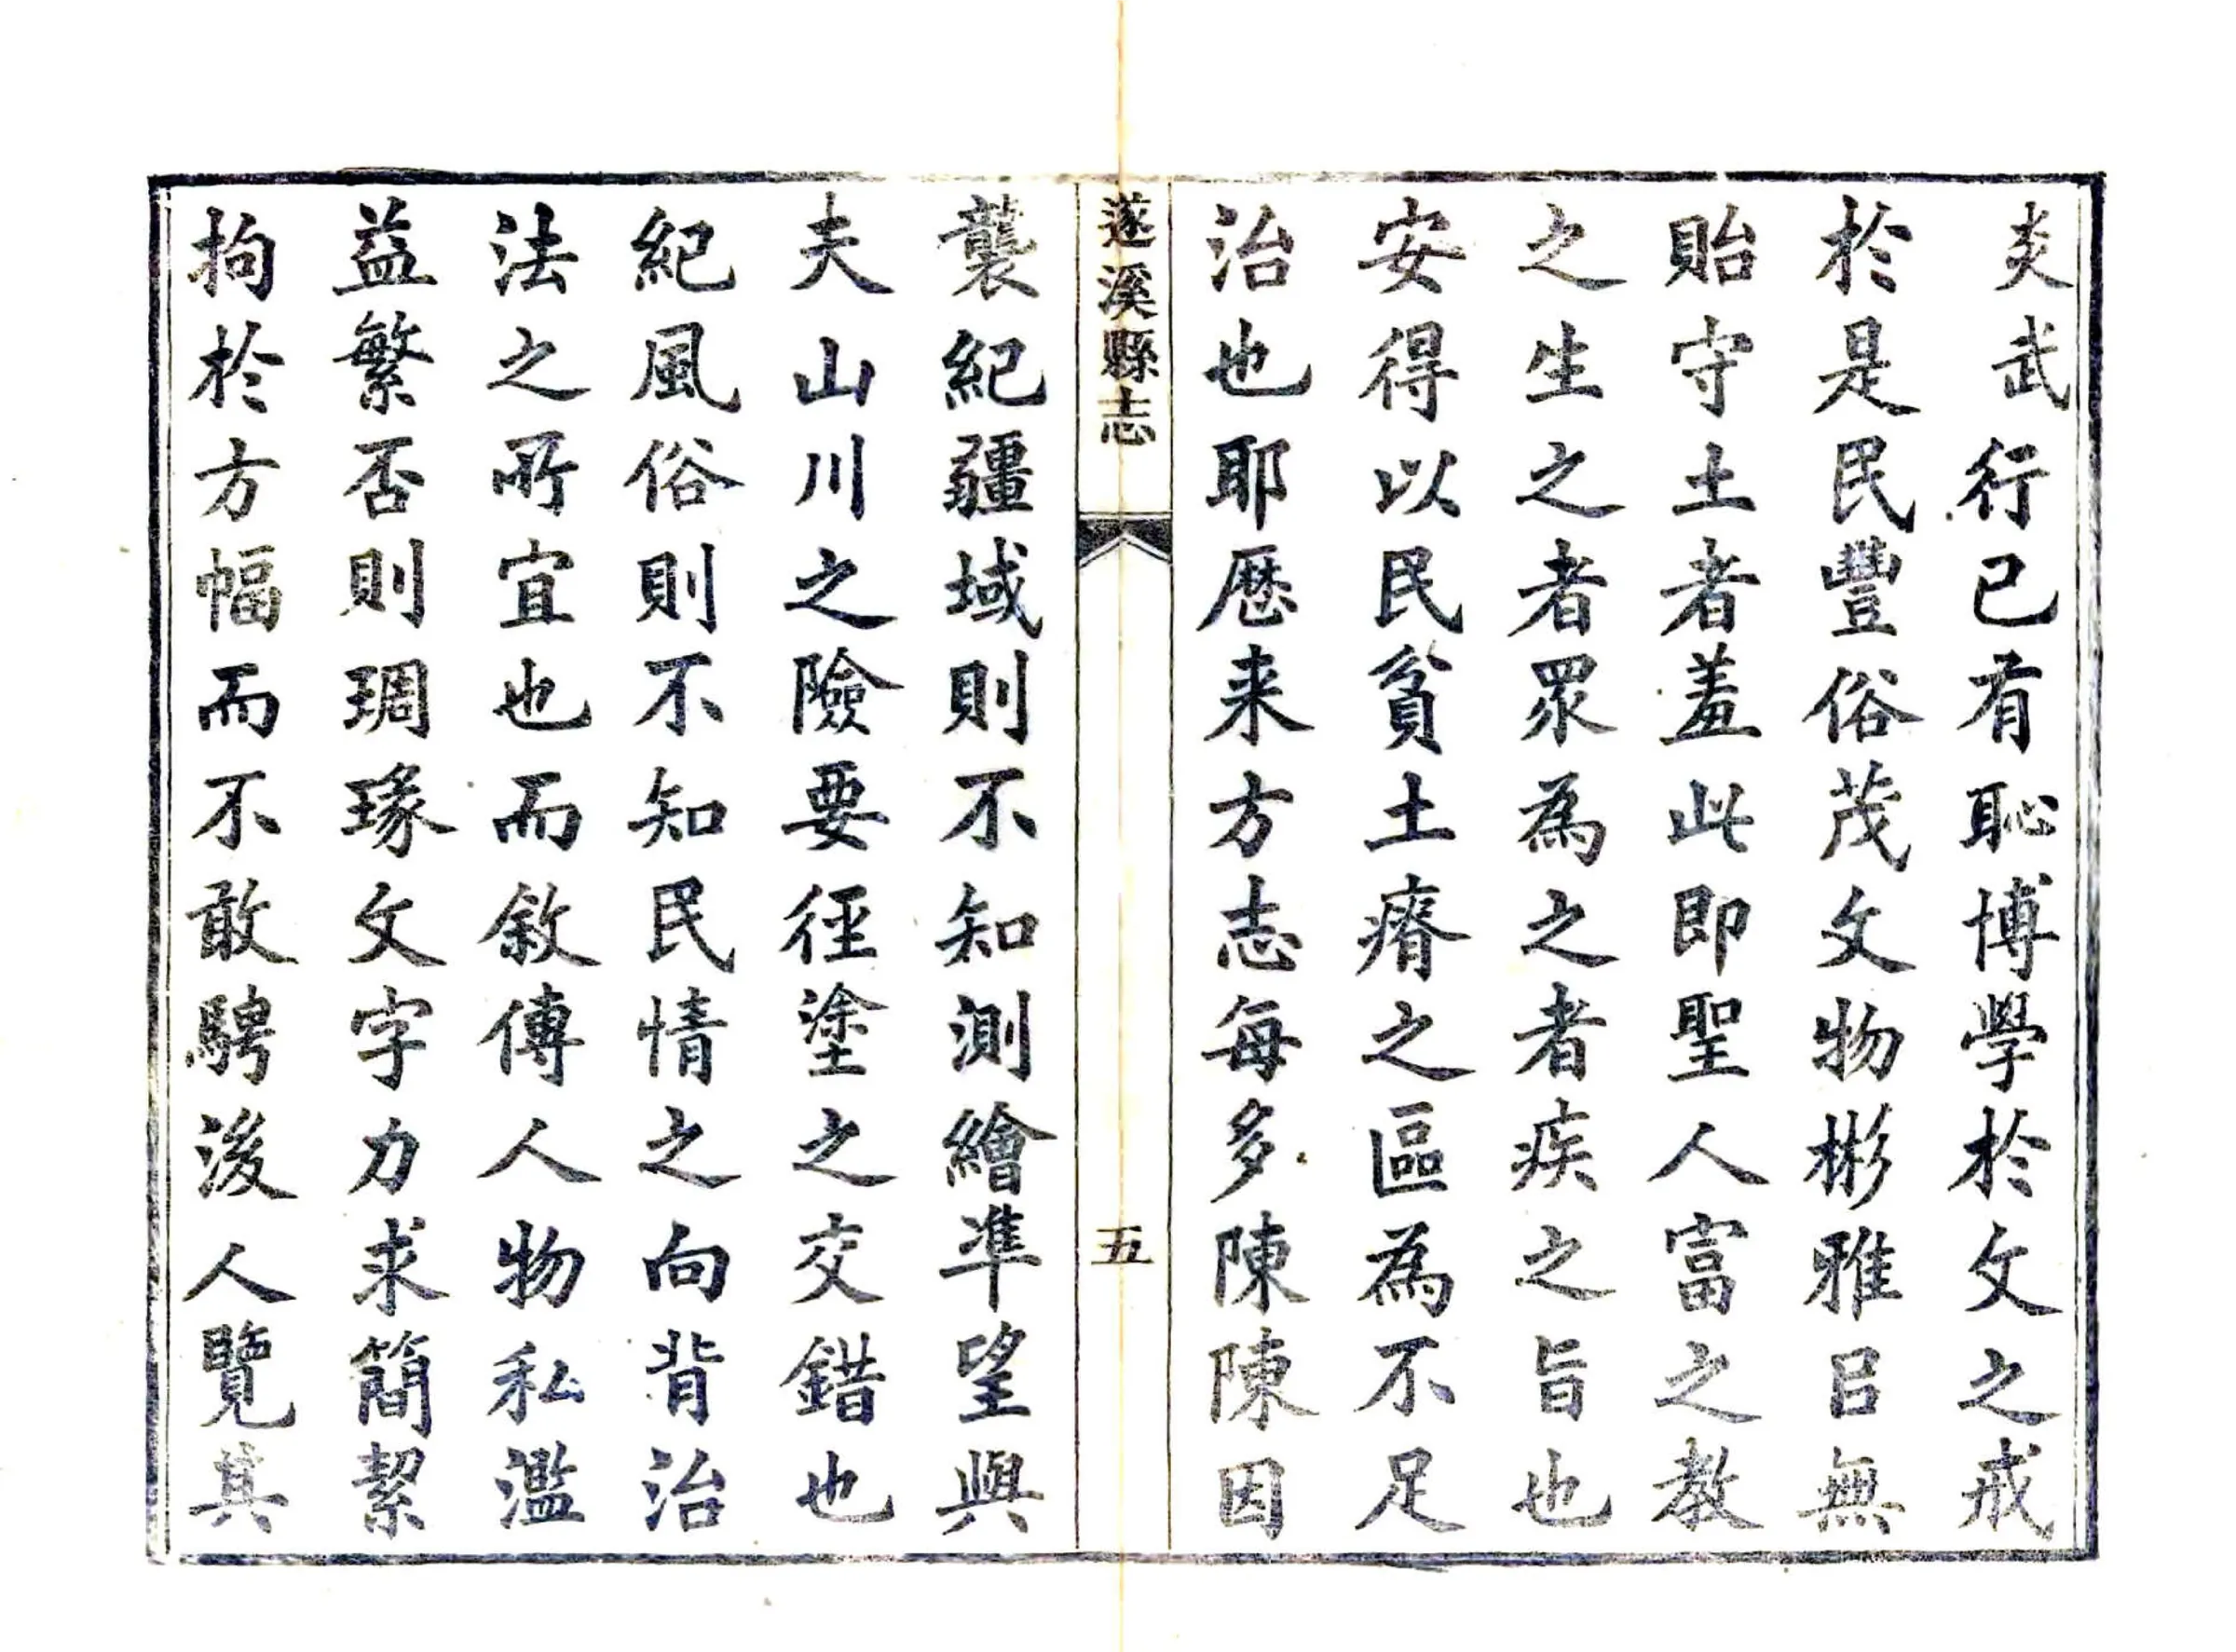 炎武行已有恥博學於文之戒
於是民豐俗茂文物彬雅吕無
貽守土者羞此即聖人富之教
之生之者眾為之者疾之旨也
安得以民貧土瘠之區為不足
治也耶歷来方志每多陳陳因
遂溪縣志
五
襲紀疆域則不知測繪準望與
夫山川之險要徑塗之交錯也
紀風俗則不知民情之向背治
法之所宜也而敘傳人物私濫
益繁否則琱瑑文字力求簡絜
拘於方幅而不敢騁後人覽其